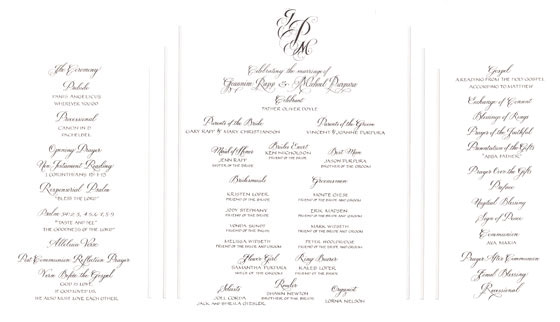 The Ceremony
Prelude
PANIS ANGELICUS
WHEREVER YOU GO
Processional
CANON IN D
PACHELBEL
Opening Prayer
New Testament Reading
1 CORINTHIANS 13:1-13
Responsorial Psalm
"BLESS THE LORD"
Psalm 34:2-3, 4-5,
"TASTE AND SEE"
THE GOODNESS OF THE LORD"
Alleluia Verse
Post Communion Reflection Prayer
Verse Before the Gospel
GOD IS LOVE
IF GOD LOVED US,
WE ALSO MUST LOVE EACH OTHER.
JPM
Celebrating the marriage of
Rapp & Michael Purpura
Celebrant
FATHER OLIVER DOYLE
Parents of the Bride
GARY RAPP & MARY CHRISTIANSON
Parents of the Groom
VINCENT & JOANNE PURPURA
Maid of Honor
JENN RAPP
SISTER OF THE BRIDE
Brides Escort
KEN NICHOLSON
FRIEND OF THE BRIDE
Best Man
JASON PURPURA
BROTHER OF THE GROOM
Bridesmaids
KRISTEN LOPER
FRIEND OF THE BRIDE
JODY STEPHANY
FRIEND OF THE BRIDE
LINDA SUNDT
FRIEND OF THE BRIDE
MELISSA WIDSETH
FRIEND OF THE BRIDE AND GROOM
Groomsmen
MONTE LOPER
FRIEND OF THE BRIDE AND GROOM
ERIK MADSEN
FRIEND OF THE BRIDE AND GROOM
MARK SUNDT
FRIEND OF THE BRIDE AND GROOM
PETER WOOLHOUSE
FRIEND OF THE BRIDE AND GROOM
Flower Girl
SAMANTHA PURTURA
FRIEND OF THE BRIDE AND GROOM
Ring Bearer
KALEB LOPER
FRIEND OF THE BRIDE AND GROOM
Soloists
JOEL CORDA
JACK AND SHEILA
Reader
SHAWN NEWTON
BROTHER OF THE BRIDE
Organist
LORNA NELSON
Gospel
A READING FROM THE HOLY GOSPEL
ACCORDING TO MATTHEW
Exchange of Consent
Blessing of Rings
Prayer of the Faithful
Presentation of the Gifts
"ABBA FATHER"
Prayer Over the Gifts
Preface
Nuptial Blessing
Sign of Peace
Communion
AVA MARIA
Prayer After Communion
Final Blessing
Recessional